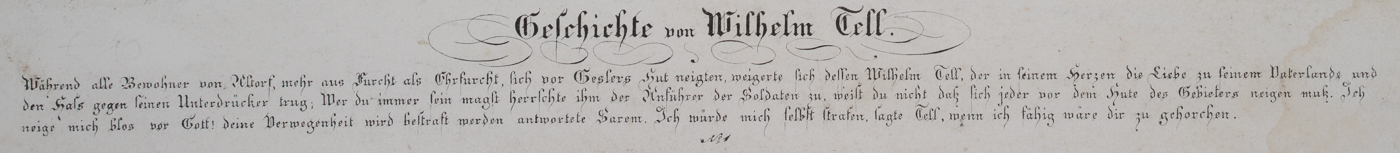 Geschichte von Wilhelm Tell.
Während alle Bewohner von Altorf, mehr aus Furcht als Ehrfurcht, sich vor Geslers Hut neigten, weigerte sich dessen Wilhelm Tell, der in seinem Herzen die Liebe zu seinem Vaterlande und
den Hass gegen seinen Unterdrücker trug; Wer du immer sein magst herrschte ihm der Anführer der Soldaten zu, weist du nicht daß sich jeder vor dem Hute des Gebieters neigen muß. Ich
neige mich blos vor Gott! deine Verwegenheit wird bestraft werden antwortete Sarem. Ich würde mich selbst strafen, sagte Tell, wenn ich fähig wäre dir zu gehorchen.
№1